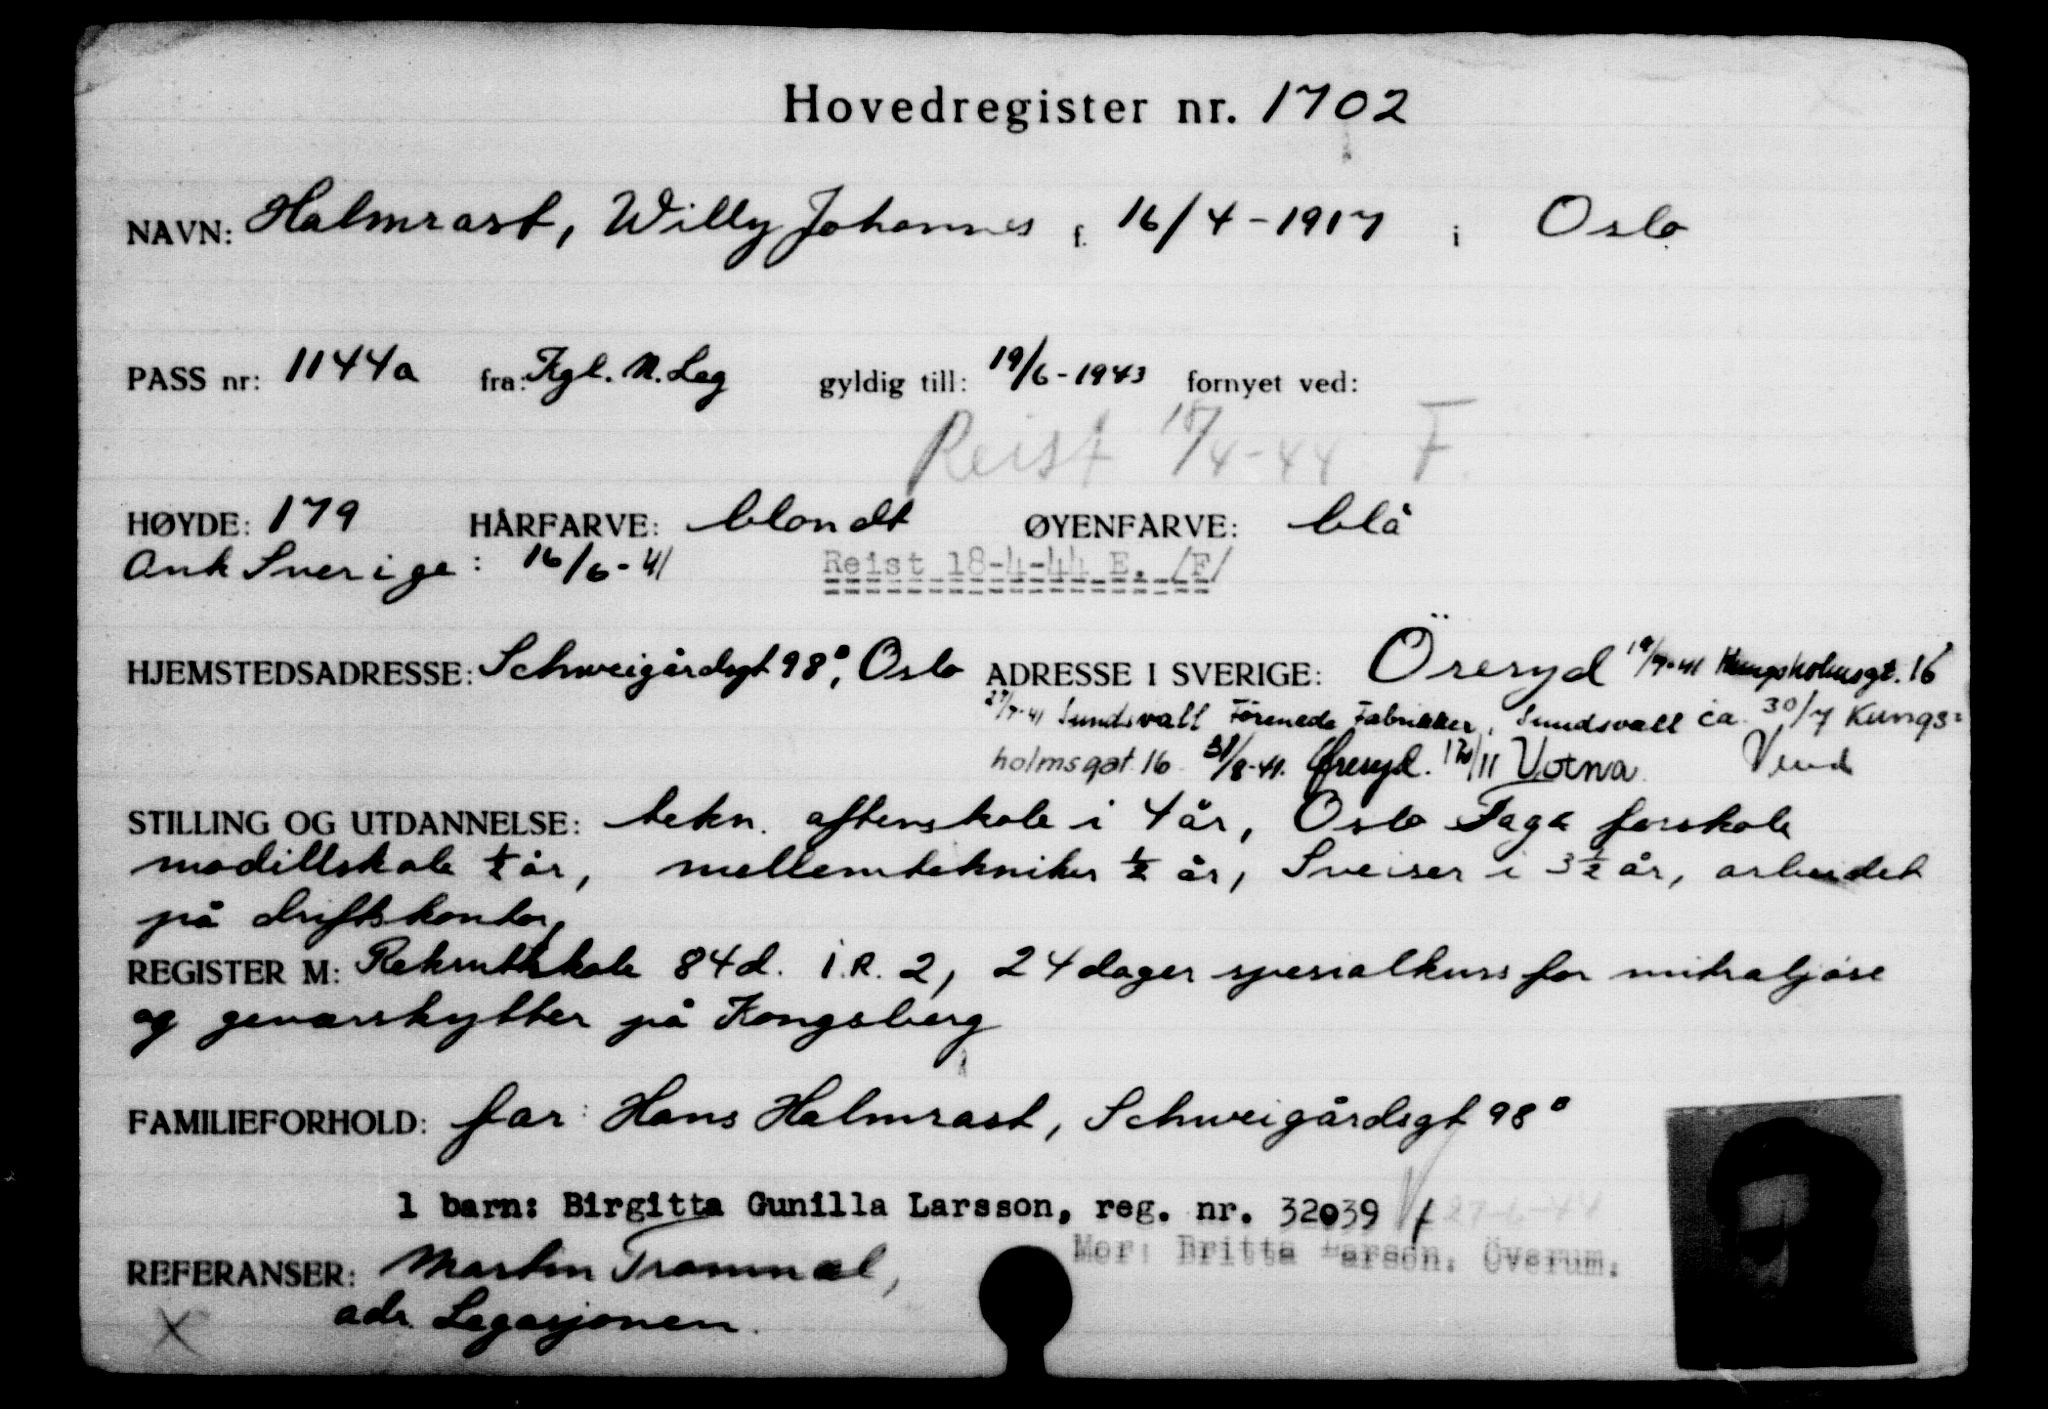 Hovedregister nr. 1702
NAVN: Halmrast, Willy Johannes f. 16/4-1917 i Oslo
PASS nr: 1144a fra: Kgl. N. Leg gyldig till: 19/6-1943 fornyet ved:
Reist 18/4-44 F.
HØYDE: 179 HÅRFARVE: blondt ØYENFARVE: blå
Ank Sverige: 16/6-41 Reist 18-4-44 E. /F/
HJEMSTEDSADRESSE: Schweigårdsgt 98º, Oslo ADRESSE I SVERIGE: Öreryd 19/7-41 Kungsholmsgt. 16
29/7-41 Sundsvall Förenede Fabrikker, Sundsvall ca. 30/7 Kungs=
holmsgat 16 31/8-41. Öreryd. 12/11 Votna Vend
STILLING OG UTDANNELSE: tekn. aftenskole i 4 år, Oslo Fag forskole
modillskole ½ år, mellemtekniker ½ år, Sveiser i 3½ år, arbeidet
på driftskontor,
REGISTER M: Rekruttskole 84 d. I.R. 2, 24 dager spesialkurs for mitraljøse
og geværskytter på Kongsberg
FAMILIEFORHOLD: far: Hans Halmrast, Schweigårdsgt 98º
1 barn: Birgitta Gunilla Larsson, reg. nr. 32039 f 27-6-44
Mor: Britta Larson. Överum.
REFERANSER: Martin Trammæl,
adr. Legasjonen.
X